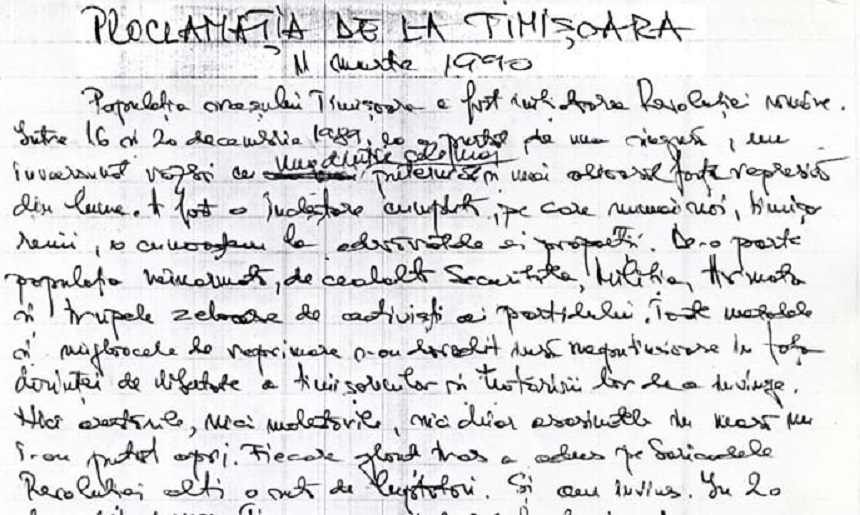 PROCLAMAȚIA DE LA TIMIȘOARA
11 martie 1990
Populația orașului Timișoara a fost inițiatoarea Revoluției române.
Între 16 și 20 decembrie 1989, ea a purtat de una singură, un
înverșunat război cu una dintre cele mai puternice și mai odioase forțe represive
din lume. A fost o încleștare cumplită, pe care numai noi, timișo
renii, o cunoaștem la adevăratele ei proporții. De o parte
populația neînarmată, de cealaltă Securitatea, Miliția, Armata
și trupele zeloase de activiști ai partidului. Toate metodele
și mijloacele de reprimare s-au dovedit însă neputincioase în fața
dorinței de libertate a timișorenilor și hotărârii lor de a învinge.
Nici arestările, nici molestările, nici chiar asasinatele în masă nu
i-au putut opri. Fiecare glonț tras a adus pe baricadele
Revoluției alți o sută de luptători. Și am învins. În 20